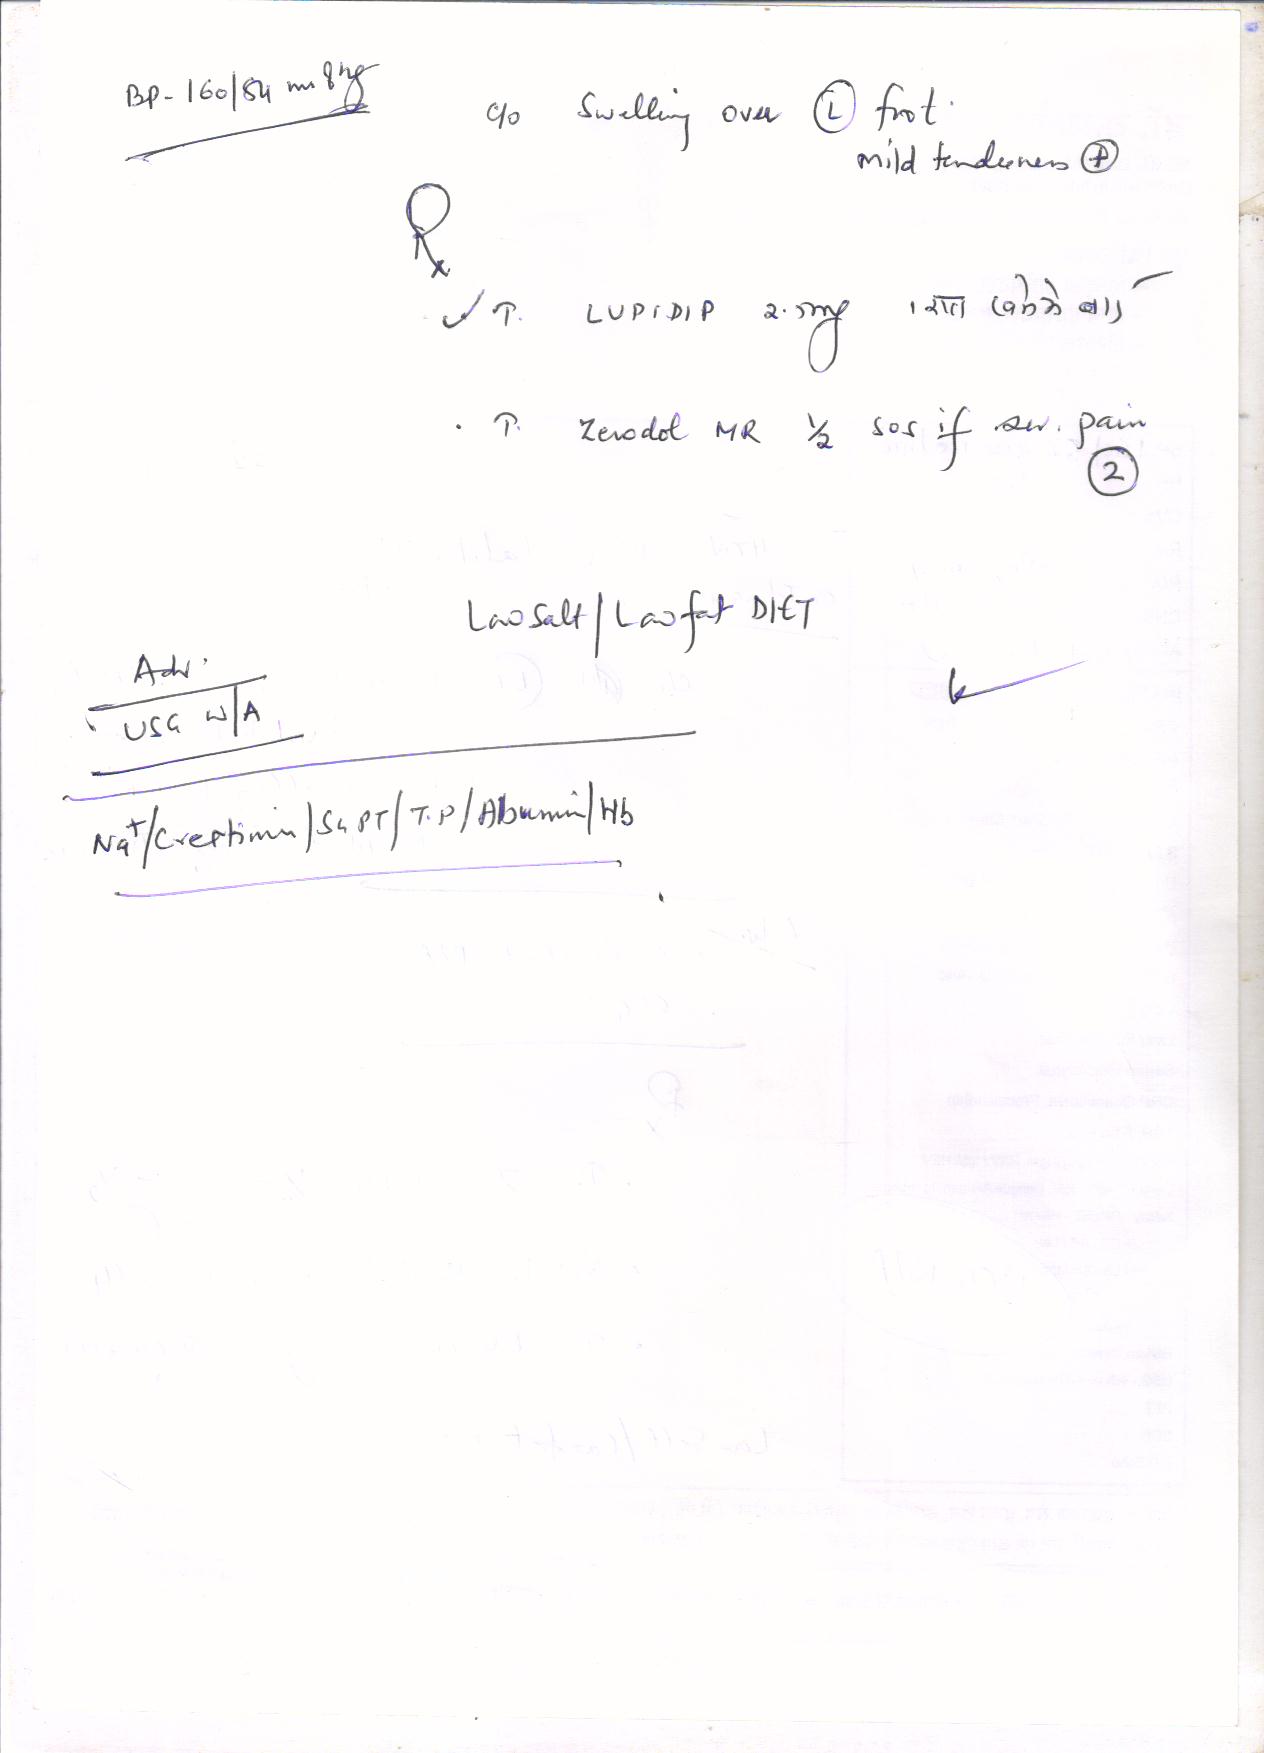 BP- 160/84 mm Hg
c/o Swelling over (L) foot.
mild tenderness (+)
Rx
✓ T. LUPIDIP 2.5mg 1 रात (खाने के बाद)
. T. Zerodol MR 1/2 SOS if sev. pain
(2)
Low Salt / Low fat DIET
Adv.
USG W/A
Na+/Creatinin/SGPT/T.P/Albumin/Hb